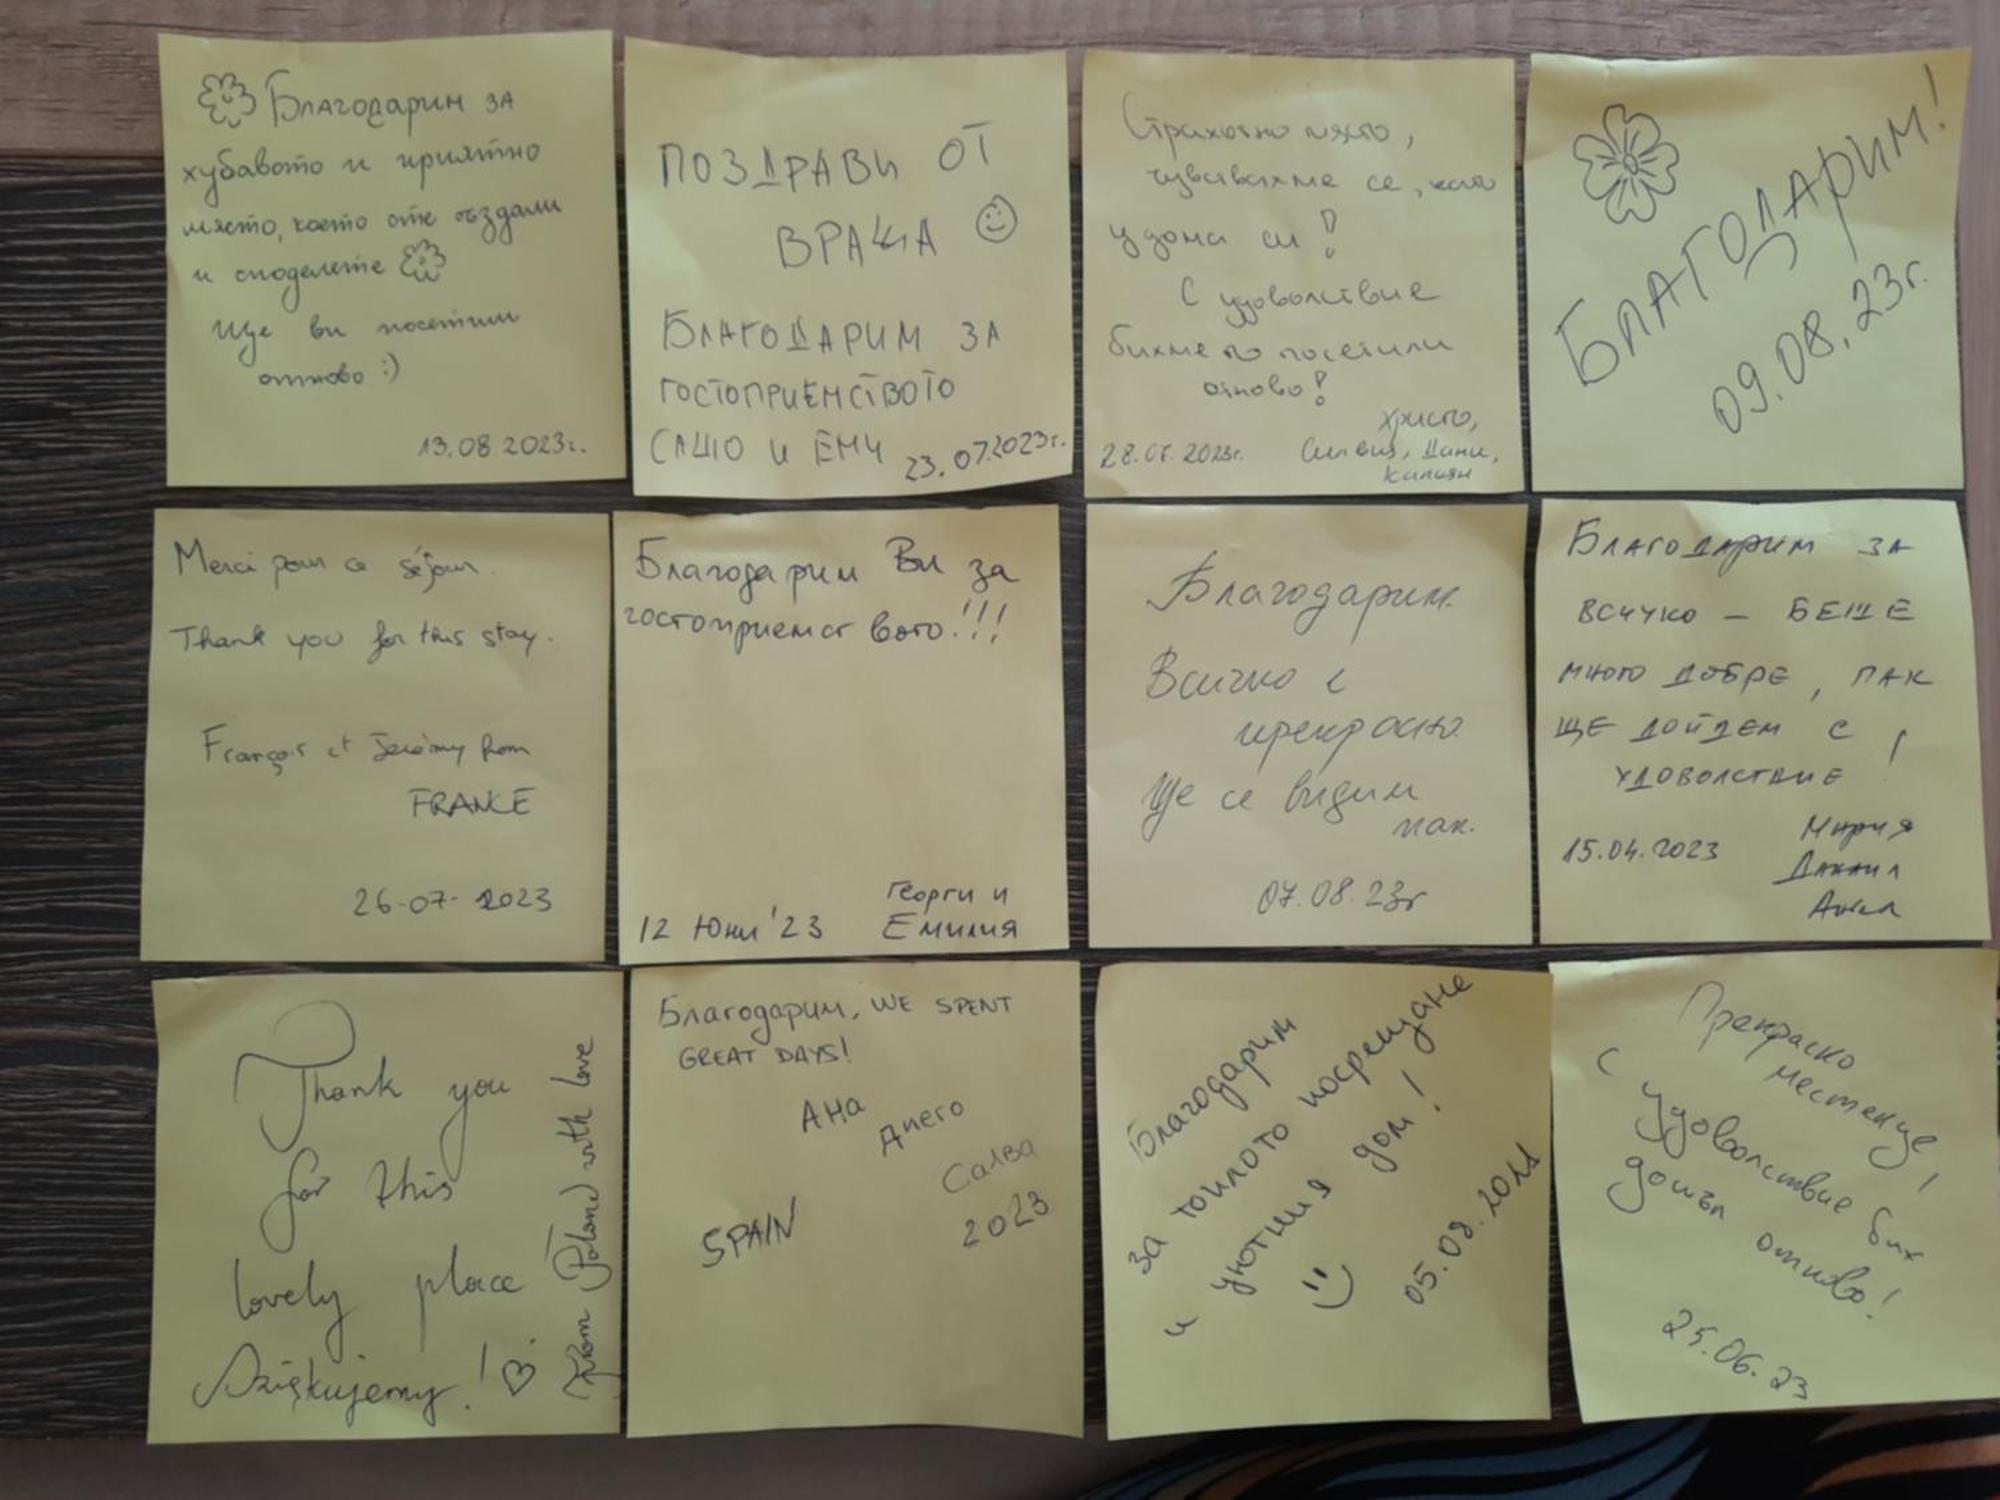 Благодарим за
хубавото и приятно
място, което сте създали
и споделете
Ще ви посетим
отново :)
13.08.2023г.
ПОЗДРАВИ ОТ
ВРАЦА
БЛАГОДАРИМ ЗА
ГОСТОПРИЕМСТВОТО
САШО И ЕМИ 23.07.2023г.
Страхотно място,
чувствахме се, като
у дома си!
С удоволствие
бихме го посетили
отново!
Христо,
Силвия, Дани,
28. 2023г.
БЛАГОДАРИМ!
09.08.23г.
Merci pour ce séjour.
Thank you for this stay.
François et Jérémy from
FRANCE
26-07-2023
Благодарим Ви за
гостоприемството!!!
12 Юни '23 Георги и
Емилия
Благодарим.
Всичко е
прекрасно.
Ще се видим
пак.
07.08.23г
БЛАГОДАРИМ ЗА
ВСИЧКО - БЕШЕ
МНОГО ДОБРЕ, ПАК
ЩЕ ДОЙДЕМ С
УДОВОЛСТВИЕ!
15.04.2023 Мария
Даниил
Thank you
for this
lovely place
Dziękujemy!
From Poland with love
Благодарим, WE SPENT
GREAT DAYS!
АНА
ДИЕГО
САЛВА
SPAIN
2023
Благодарим
за топлото посрещане
и уютния дом!
Прекрасно
местенце!
С удоволствие бих
дошъл отново!
25.06.23